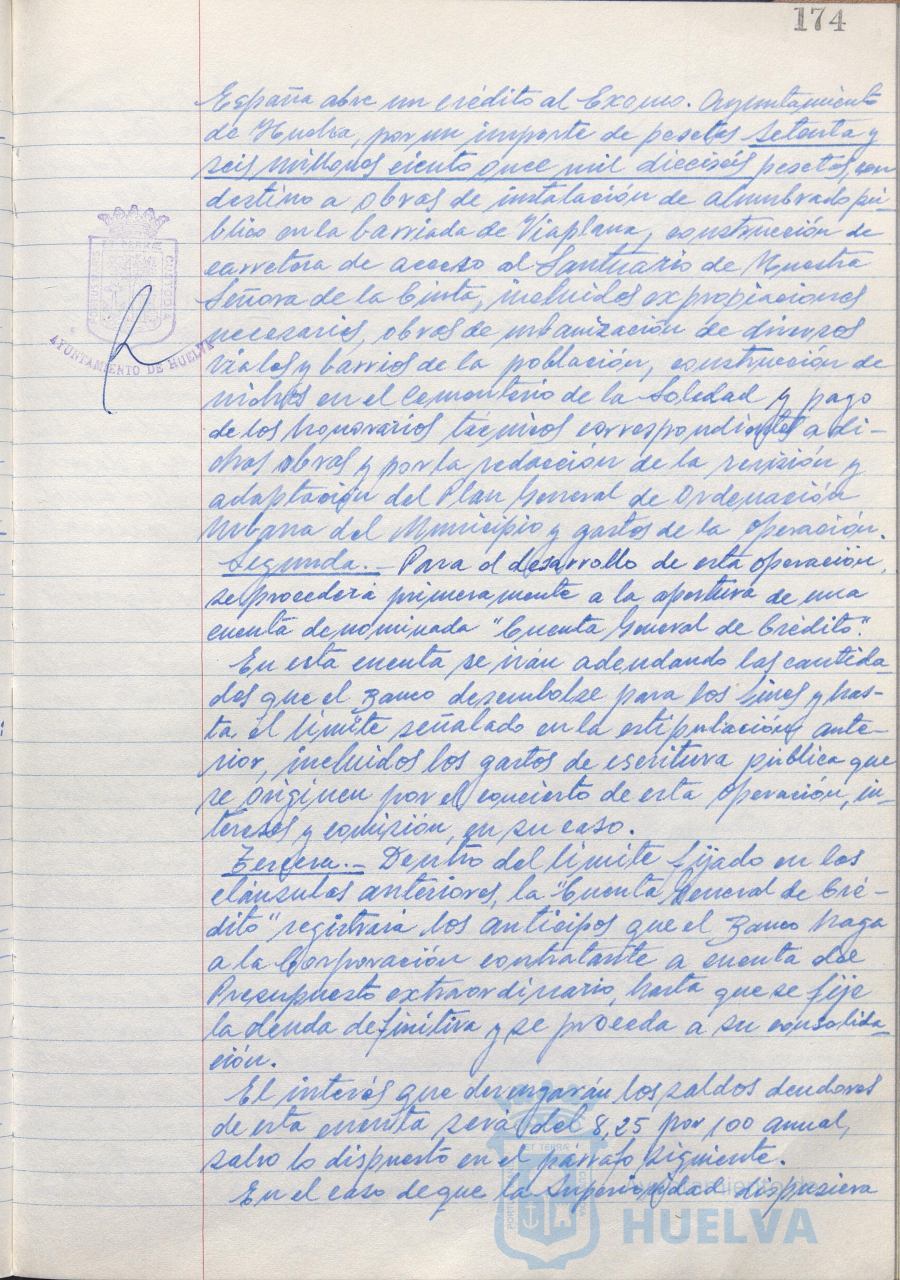 174
España abre un crédito al Excmo. Ayuntamiento
de Huelva, por un importe de pesetas setenta y
seis millones ciento once mil dieciseis pesetas, con
destino a obras de instalación de alumbrado pú-
blico en la barriada de Viaplana, construcción de
carretera de acceso al Santuario de Nuestra
Señora de la Cinta, incluidos expropiaciones
necesarias, obras de urbanización de diversos
viales y barrios de la población, construcción de
nichos en el Cementerio de la Soledad y pago
de los honorarios técnicos correspondientes a di-
chas obras y por la redacción de la revisión y
adaptación del Plan General de Ordenación
Urbana del Municipio y gastos de la operación.
Segunda.- Para el desarrollo de esta operación,
se procederá primeramente a la apertura de una
cuenta denominada "Cuenta General de Crédito".
En esta cuenta se irán adeudando las cantida-
des que el Banco desembolse para los fines y has-
ta el límite señalado en la estipulación ante-
rior, incluidos los gastos de escritura pública que
se originen por el concierto de esta operación, in-
tereses y comisión, en su caso.
Tercera.- Dentro del límite fijado en las
cláusulas anteriores, la "Cuenta General de Cré-
dito" registrará los anticipos que el Banco haga
a la Corporación contratante a cuenta del
Presupuesto extraordinario, hasta que se fije
la deuda definitiva y se proceda a su consolida-
ción.
El interés que devengarán los saldos deudores
de esta cuenta será del 8,25 por 100 anual,
salvo lo dispuesto en el párrafo siguiente.
En el caso de que la Superioridad dispusiera
AYUNTAMIENTO DE HUELVA
Ayuntamiento de
HUELVA